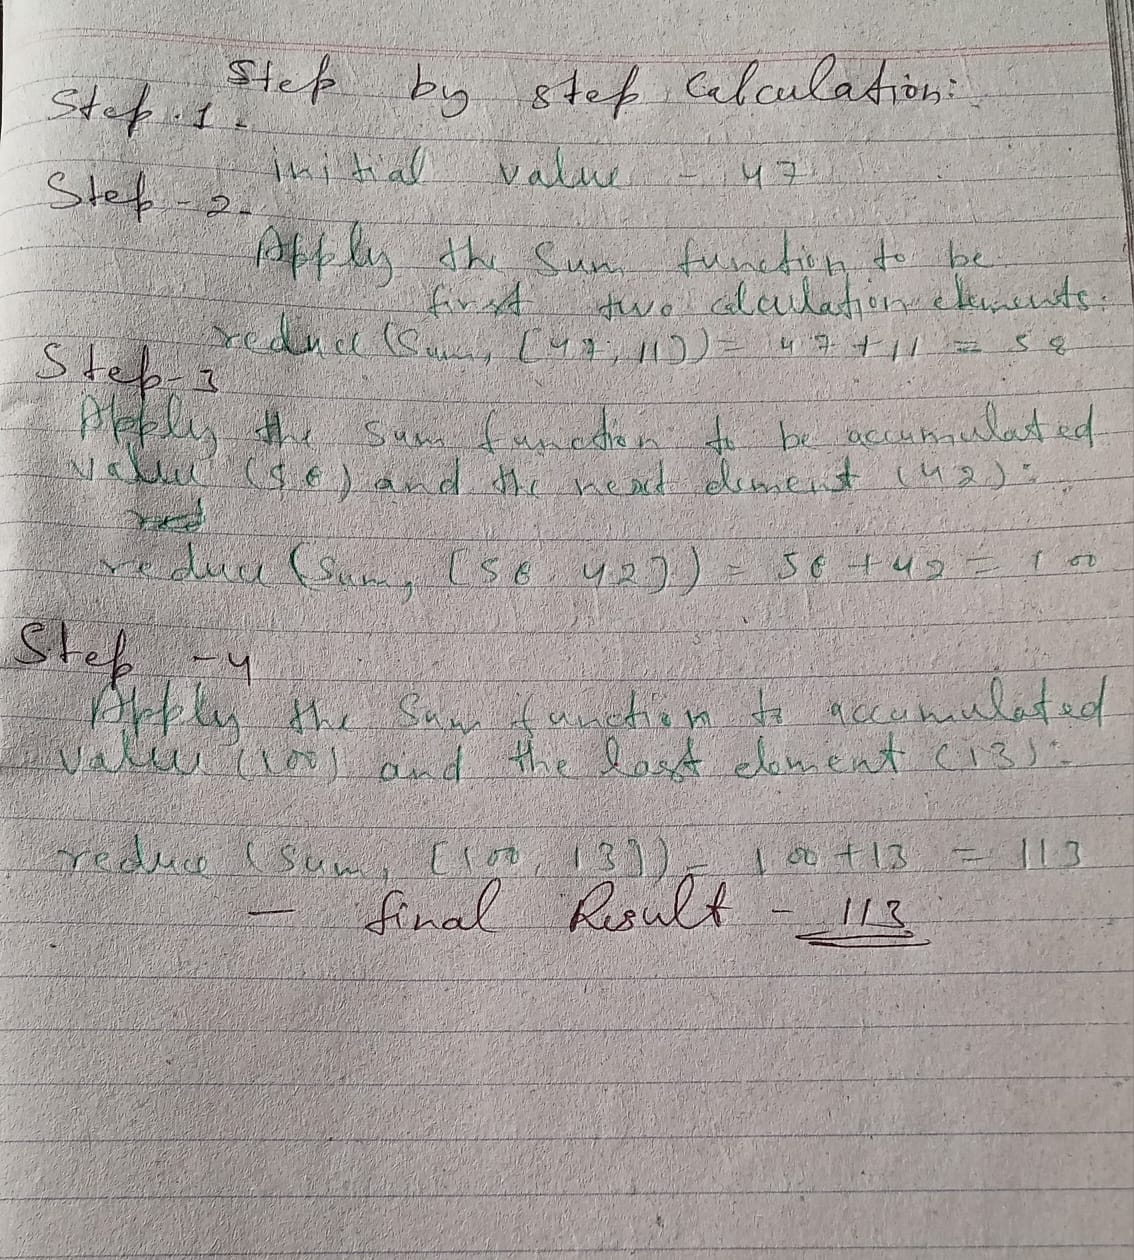 Step by step Calculation:
Step.1-
initial value - 47
Step-2-
Apply the Sum function to be
first two calculation elements.
reduce (Sum, [47, 11]) = 47 + 11 = 58
Step-3
Apply the Sum function to be accumulated
value (58) and the next element (42):
red
reduce (Sum, [58, 42]) = 58 + 42 = 100
Step -4
Apply the Sum function to accumulated
value (100) and the last element (13):
reduce (Sum, [100, 13]) - 100 + 13 = 113
- final Result - 113